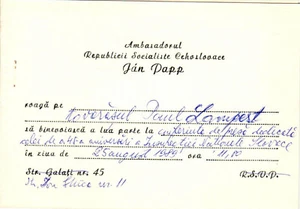 Ambasadorul
Republicii Socialiste Cehoslovace
Ján Papp
roagă pe Tovarăşul Paul Lampert
să binevoiască a lua parte la conferinta de presă dedicată
celei de a 45-a aniversări a Insurecţiei Naţionale Slovace
în ziua de 25 august 1989 ora 11,10
Str. Galați nr. 45
R. S. V. P.
Str. Ion Ghica nr. 11